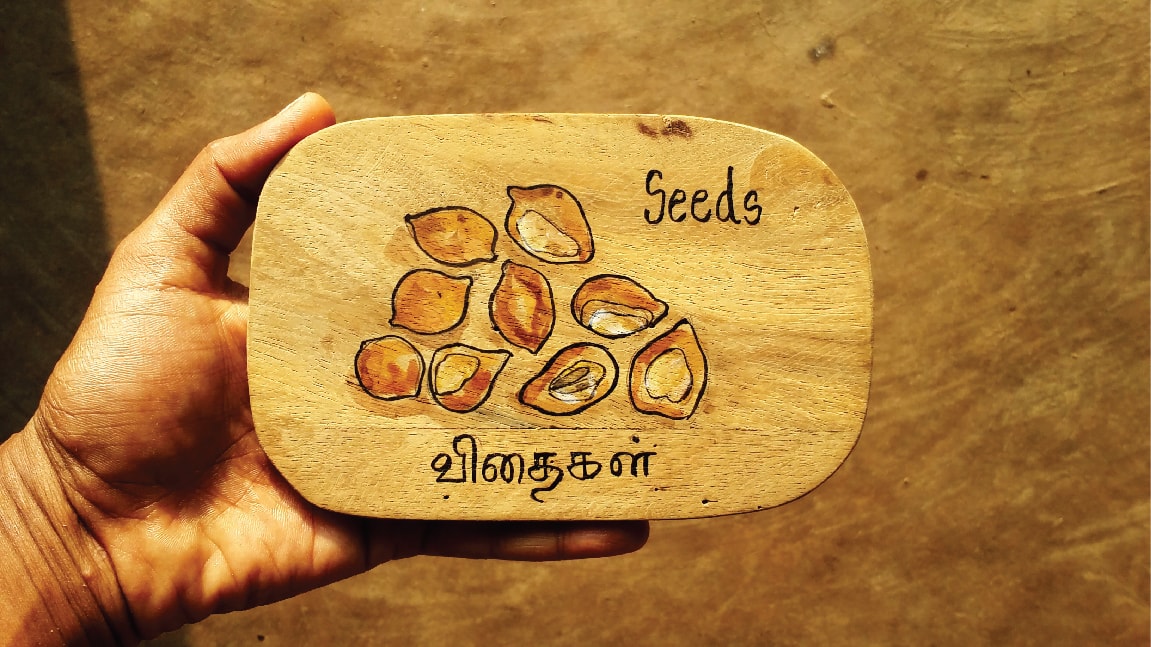 Seeds
விதைகள்